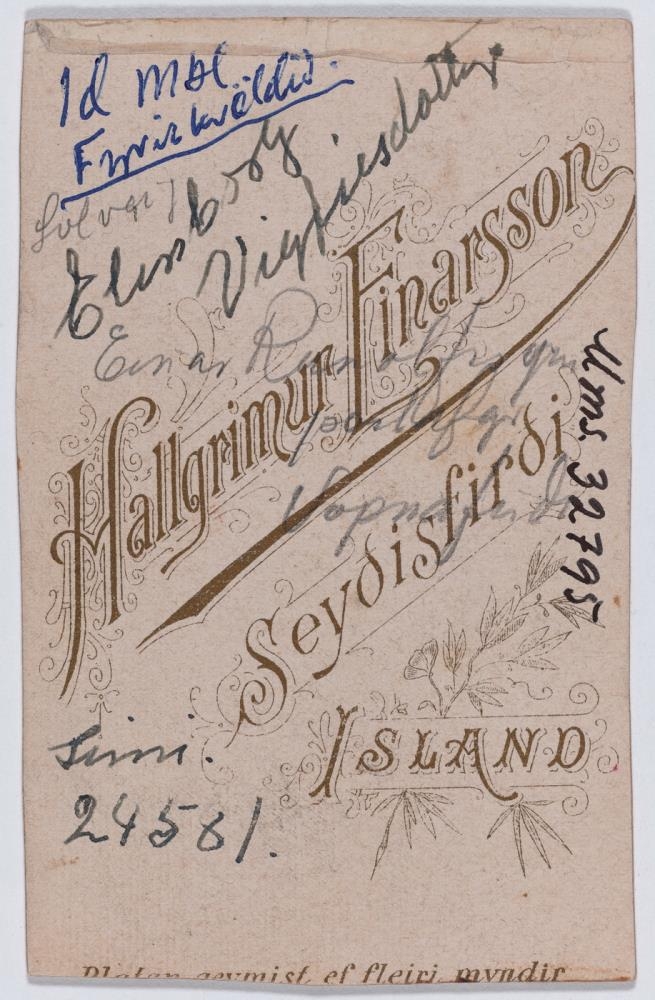 Id mbl
Fyrir kvöldið.
Solveig
Elinborg
Vigfúsdóttir
Einar Runólfsson
Vopnafirði
Hallgrimur Einarsson
Seyðisfirði
ISLAND
Mms. 32795
Simi.
24581.
Platan geymist ef fleiri myndir